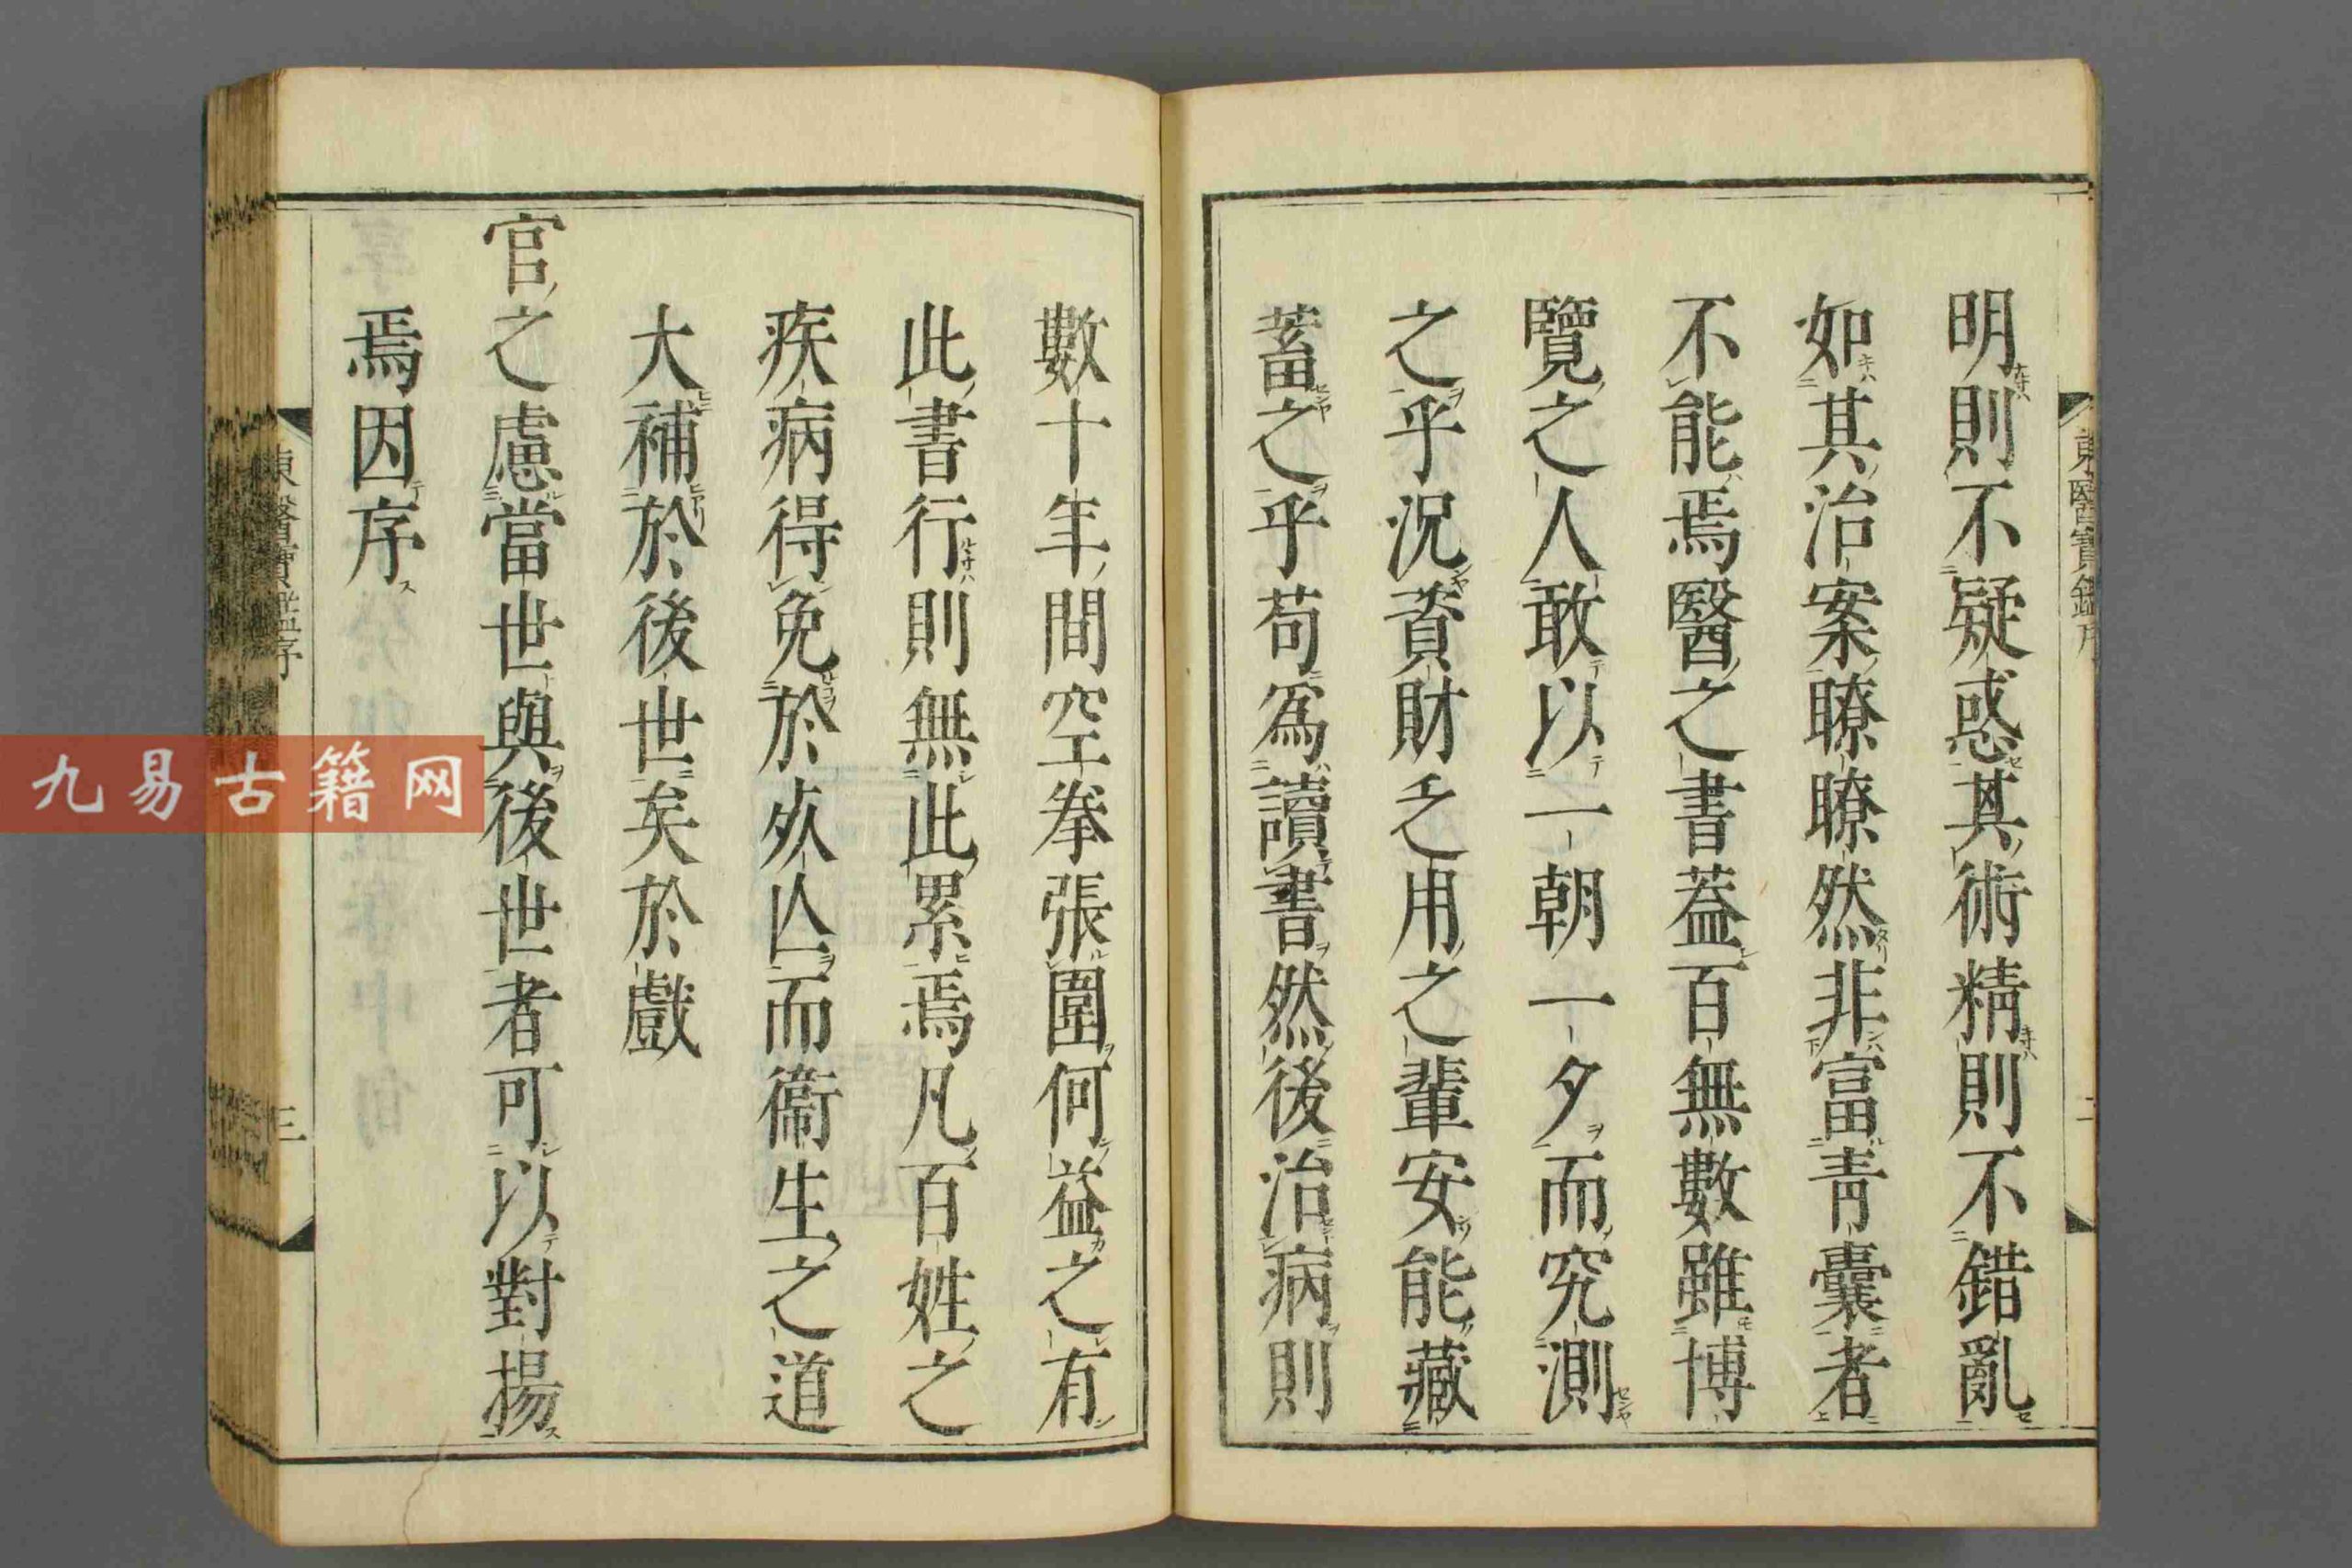 明則不疑惑其術精則不錯亂
如其治案瞭瞭然非富靑囊者
不能焉醫之書蓋百無數雖博
覽之人敢以一朝一夕而究測
之乎況資財乏用之輩安能藏
蓄之乎苟爲讀書然後治病則
數十年間空拳張圍何益之有
此書行則無此累焉凡百姓之
疾病得免於夭亾而衞生之道
大補於後世矣於戲
官之慮當世與後世者可以對揚
焉因序
東醫寶鑑序
三
九易古籍网